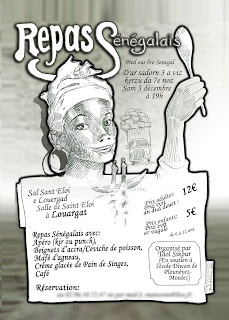 Repas Sénégalais
Pred eus bro Senegal
D'ar sadorn 3 a viz
kerzu da 7e noz
Sam 3 décembre
à 19h
Sal Sant Eloi
e Louergad
Salle de Saint Eloi
à Louargat
Prix adulte:
12€
Prix enfants:
5€
de 6 à 12 ans
Repas Sénégalais avec:
Apéro (kir ou punch),
Beignets d'accra/Ceviche de poisson,
Mafé d'agneau,
Crème glacée de Pain de Singes,
Café
Organisé par
Skolidou
(En soutien à
l'école Diwan de
Plounévez-
Moedec)
Réservation: